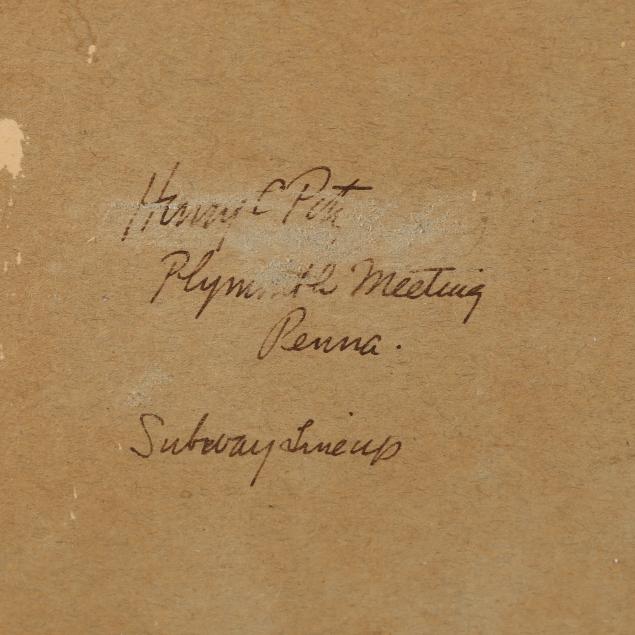 Henry C Pitz
Plymouth Meeting
Penna.
Subway Lineup